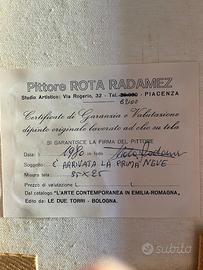 Pittore ROTA RADAMEZ
Studio Artistico: Via Rogerio, 32 - Tel. - PIACENZA
63100
Certificato di Garanzia e Valutazione
dipinto originale lavorato ad olio su tela
SI GARANTISCE LA FIRMA DEL PITTORE
Data: 1980 in fede
Soggetto: È ARRIVATA LA PRIMA NEVE
Misura tela: 35x25
Prezzo di valutazione L.
Dal catalogo "L'ARTE CONTEMPORANEA IN EMILIA-ROMAGNA",
Edito da LE DUE TORRI - BOLOGNA.
subito